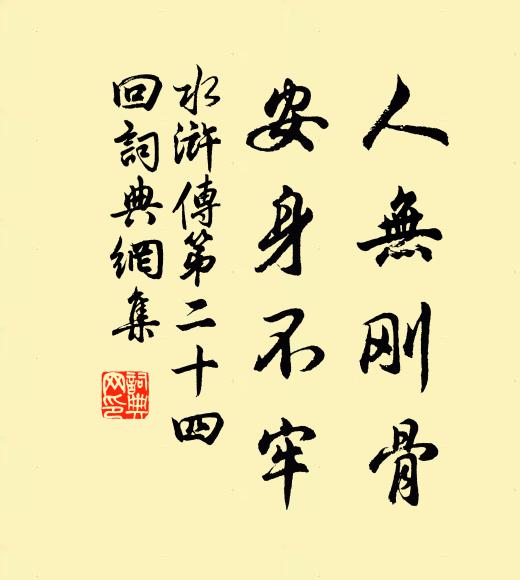 人無刚骨
安身不牢
水滸傳第二十四
回詞典網集
詞典
网印